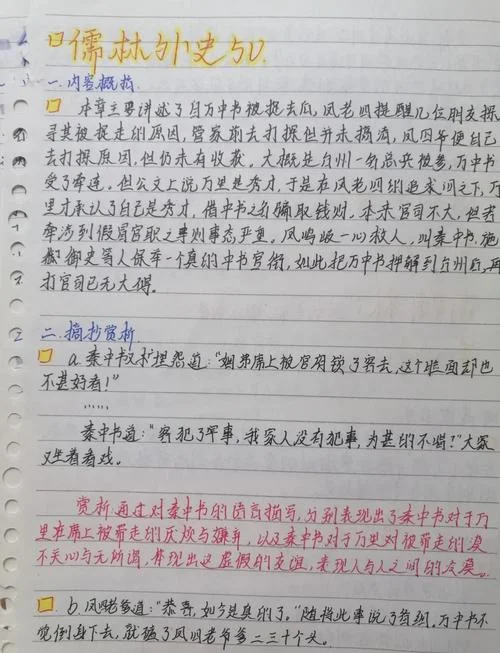 儒林外史50.
一.内容概括
本章主要讲述了自万中书被捉去后,凤老四提醒几位朋友探
寻其被捉走的原因,管家前去打探但并未摸清,凤四爷便自己
去打探原因,但仍未有收获。大概是台州一名总兵被参,万中书
受了牵连。但公文上说万里是秀才,于是在凤老四的追来问之下,万
里才承认了自己是秀才,借中书之名骗取钱财.本来官司不大,但若
牵涉到假冒官职之事则事态严重。凤鸣岐一心救人,叫秦中书、施
御史等人保举一个真的中书官衔,如此把万中书押解到台州后,再
打官司已无大碍。
二.摘抄赏析
a.秦中书又埋怨道:"姻弟席上被官府锁了客去,这个脸面却也
不甚好看!"
……
秦中书道:"客犯了事,我家人没有犯事,为甚的不唱?"大家
又坐着看戏。
赏析:通过对秦中书的语言描写,分别表现出了秦中书对于万
里在席上被带走的厌烦与嫌弃,以及秦中书对于万里对被带走的漠
不关心与无所谓,体现出这虚假的友谊,表现人与人之间的冷漠。
b.凤四老爹道:"恭喜,如今是真的了。"随将此事说了备细.万中书不
觉倒身下去,就磕了凤四老爹二三十个头。